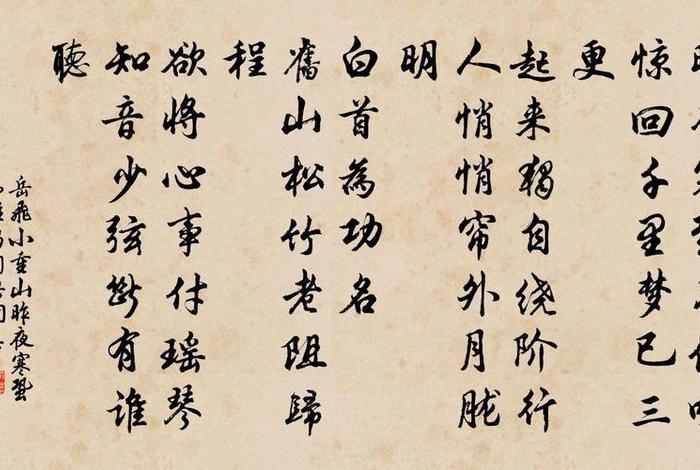 惊回千里梦已三
更
起来独自绕阶行
人悄悄帘外月胧
明
白首為功名
舊山松竹老阻歸
程
欲将心事付瑶琴
知音少弦断有谁
聽
岳飛小重山昨夜寒蛩